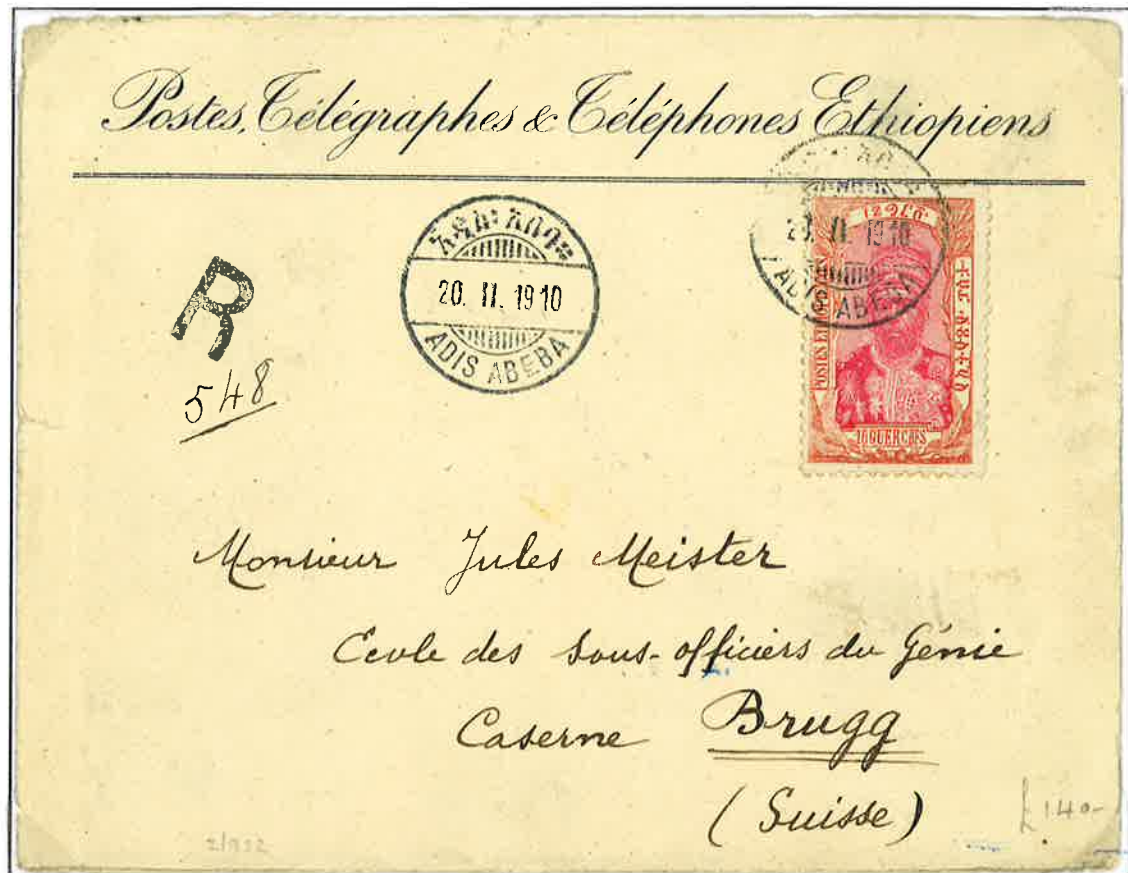 Postes, Télégraphes & Téléphones Ethiopiens
አዲስ፡ አበባ።
20. II. 1910
ADIS ABEBA
20. II. 1910
ADIS ABEBA
R
548
POSTES ETHIOPIENNES
16 GUERCHES
Monsieur Jules Meister
Ecole des Sous-officiers du Génie
Caserne Brugg
(Suisse)
£140-